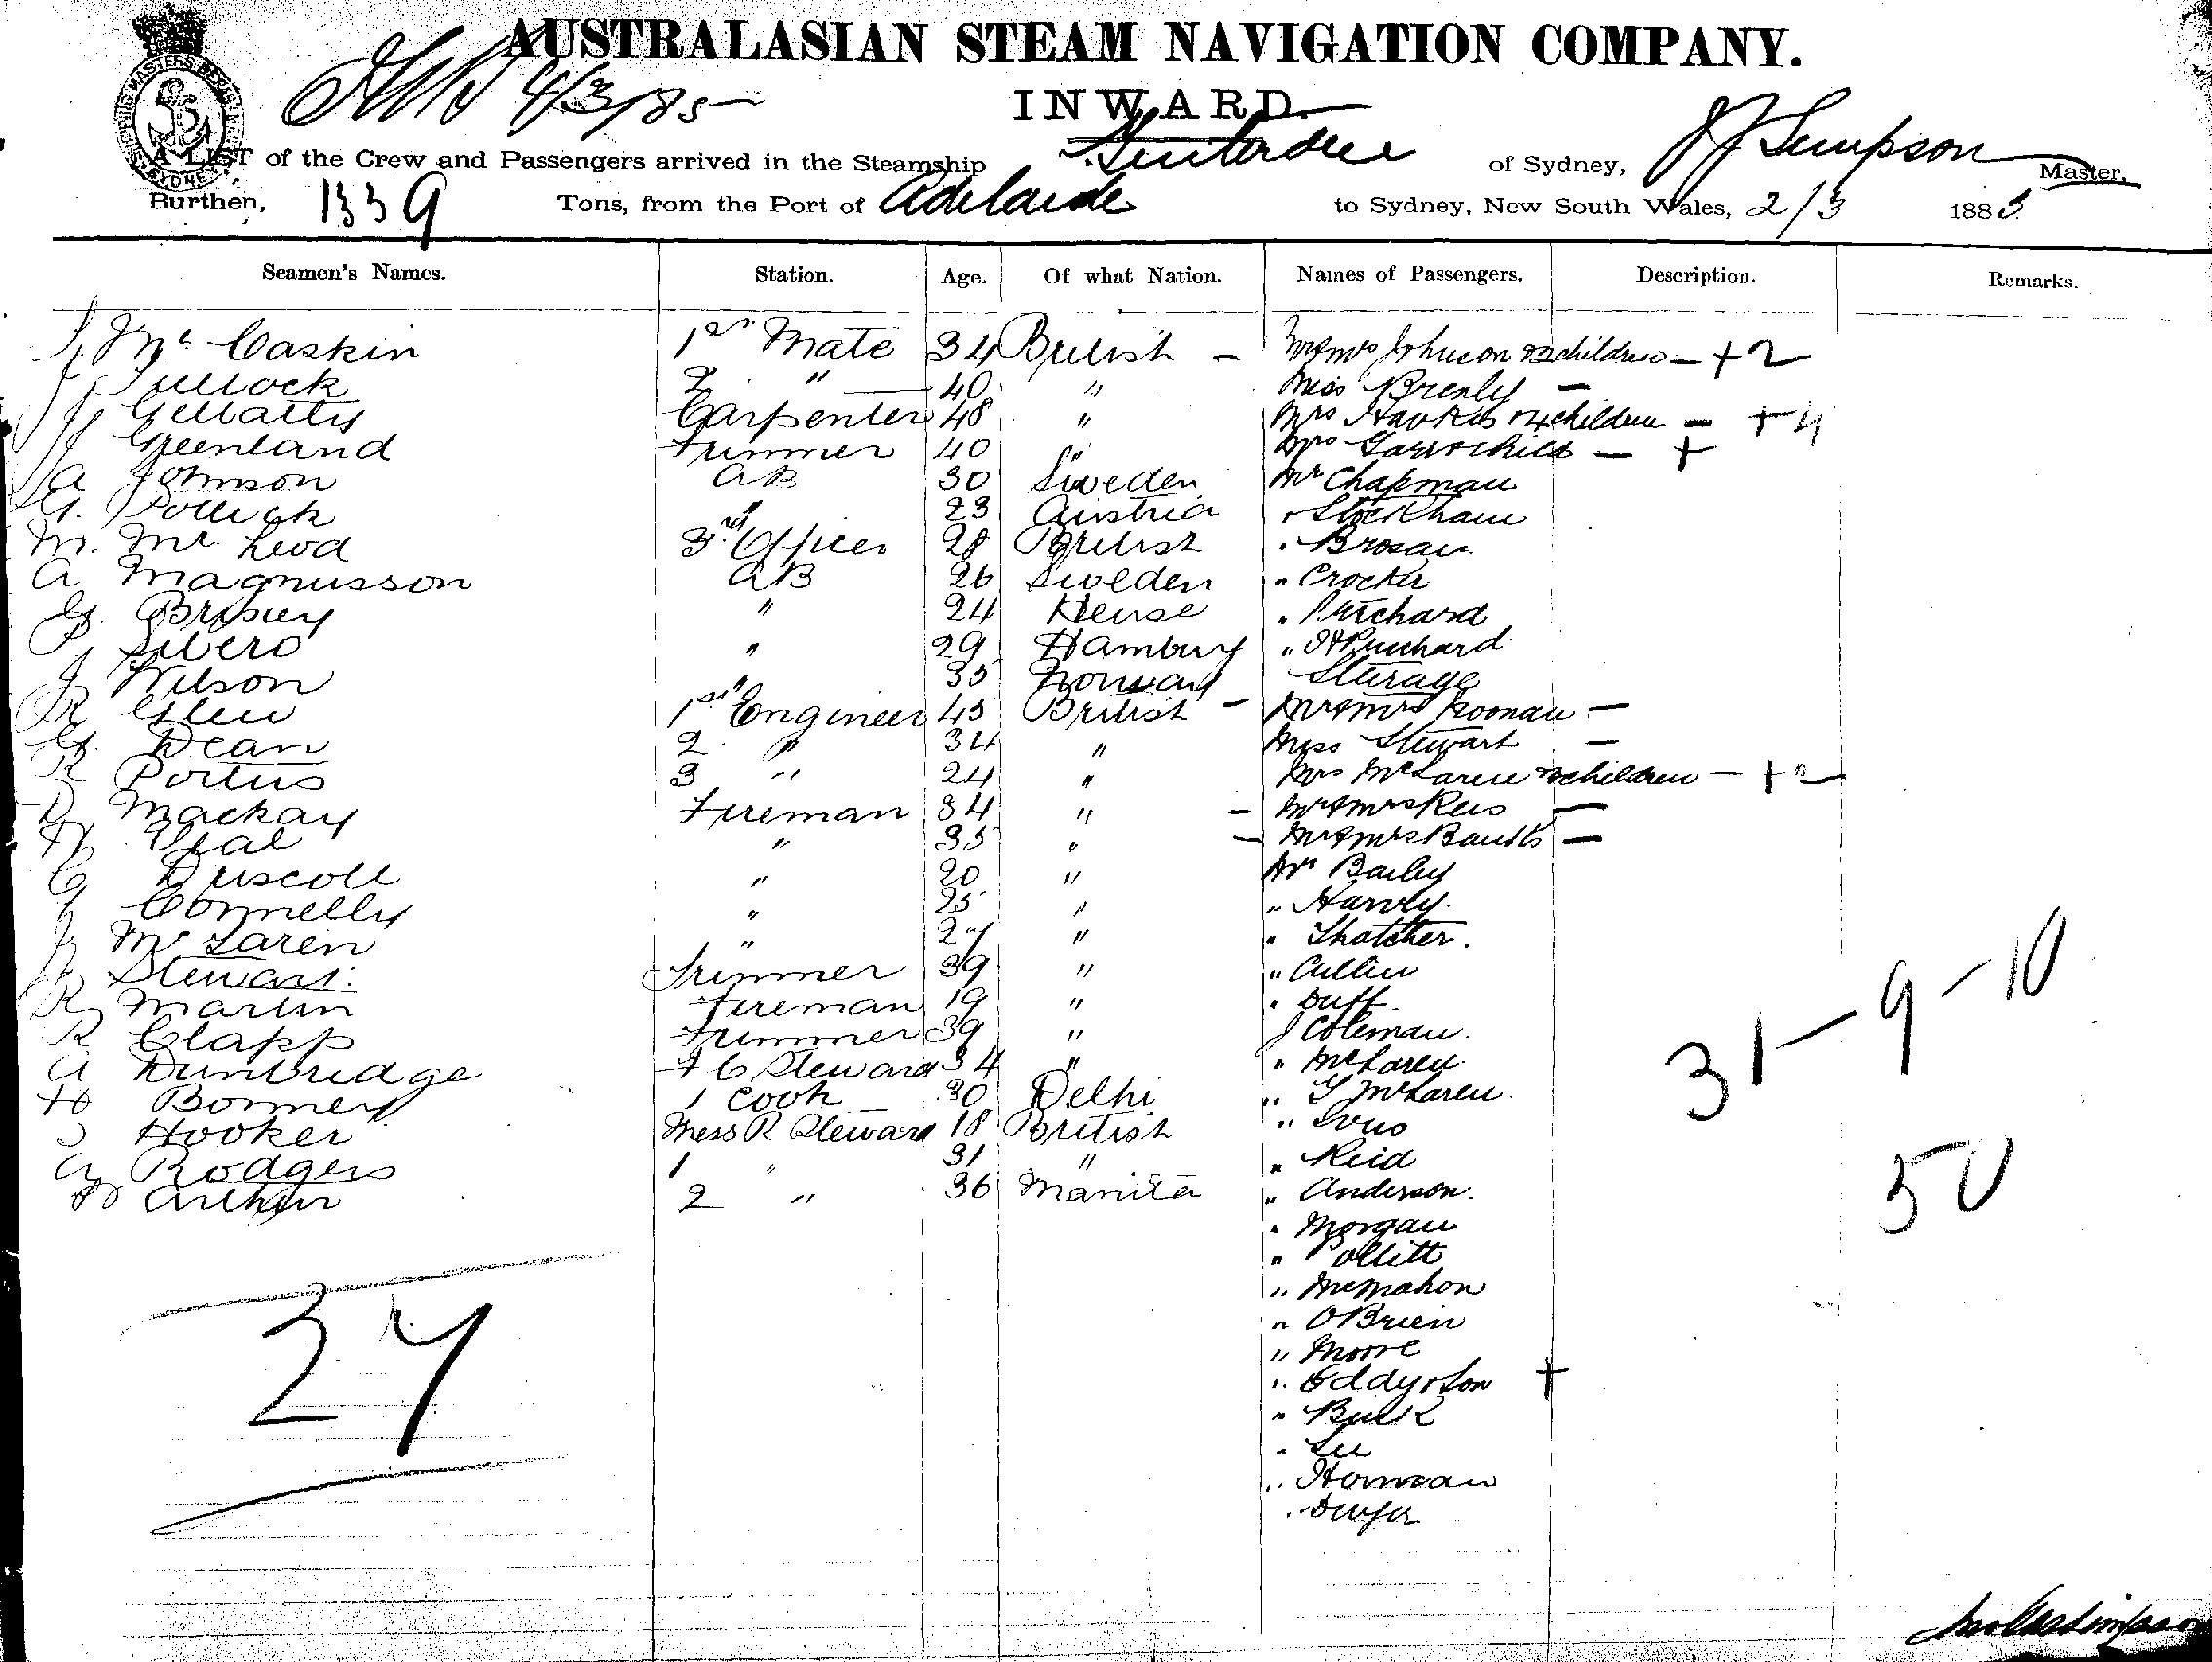 AUSTRALASIAN STEAM NAVIGATION COMPANY.
4/3/85
INWARD.
A LIST of the Crew and Passengers arrived in the Steamship of Sydney, Master,
Burthen, 1339 Tons, from the Port of Adelaide to Sydney, New South Wales, 2/3 1885
Seamen's Names. Station. Age. Of what Nation. Names of Passengers. Description. Remarks.
Mc Caskin 1st Mate 34 British - Mr & Mrs Johnson & 2 children - + 2
2 " 40 " Miss Brenly -
Carpenter 48 " Mrs & 4 children - + 4
J Greenland Trimmer 40 " Mrs & child - +
A Johnson AB 30 Sweden Mr Chapman
" 23 Austria " Stockham
M. Mc Leod 3rd Officer 28 British " Brosan
A Magnusson AB 26 Sweden " Crocker
" 24 " Pritchard
" 29 Hamburg "
J Wilson " 35 Norway Sturage
R Glew 1st Engineer 45 British - Mr & Mrs Noonan -
G. Dean 2 " 34 " Miss Stewart -
R Portus 3 " 24 " Mrs McLaren & 2 children - + 2
D Mackay Fireman 34 " - Mr & Mrs Reis -
" 35 " - Mr & Mrs Banks -
C Driscoll " 20 " Mr Bailey
Connelly " 25 " " Harvey.
J McLaren " 27 " " Thatcher.
Stewart. Trimmer 39 " " Cullin
R Martin Fireman 19 " " Duff
R Clapp Trimmer 39 " J Coleman.
A Dunbridge F C Steward 34 " " McLaren
Bonner 1 Cook 30 Delhi " G McLaren.
Hooker Mess R Steward 18 British "
Rodgers 1 " 31 " " Reid
Arthur 2 " 36 Manila " Anderson.
" Morgan
" Pollitt
" McMahon
" O'Brien
" Moore
" Eddy & Son +
"
" Lee
"
" Dwyer
27
31 - 9 - 10
50